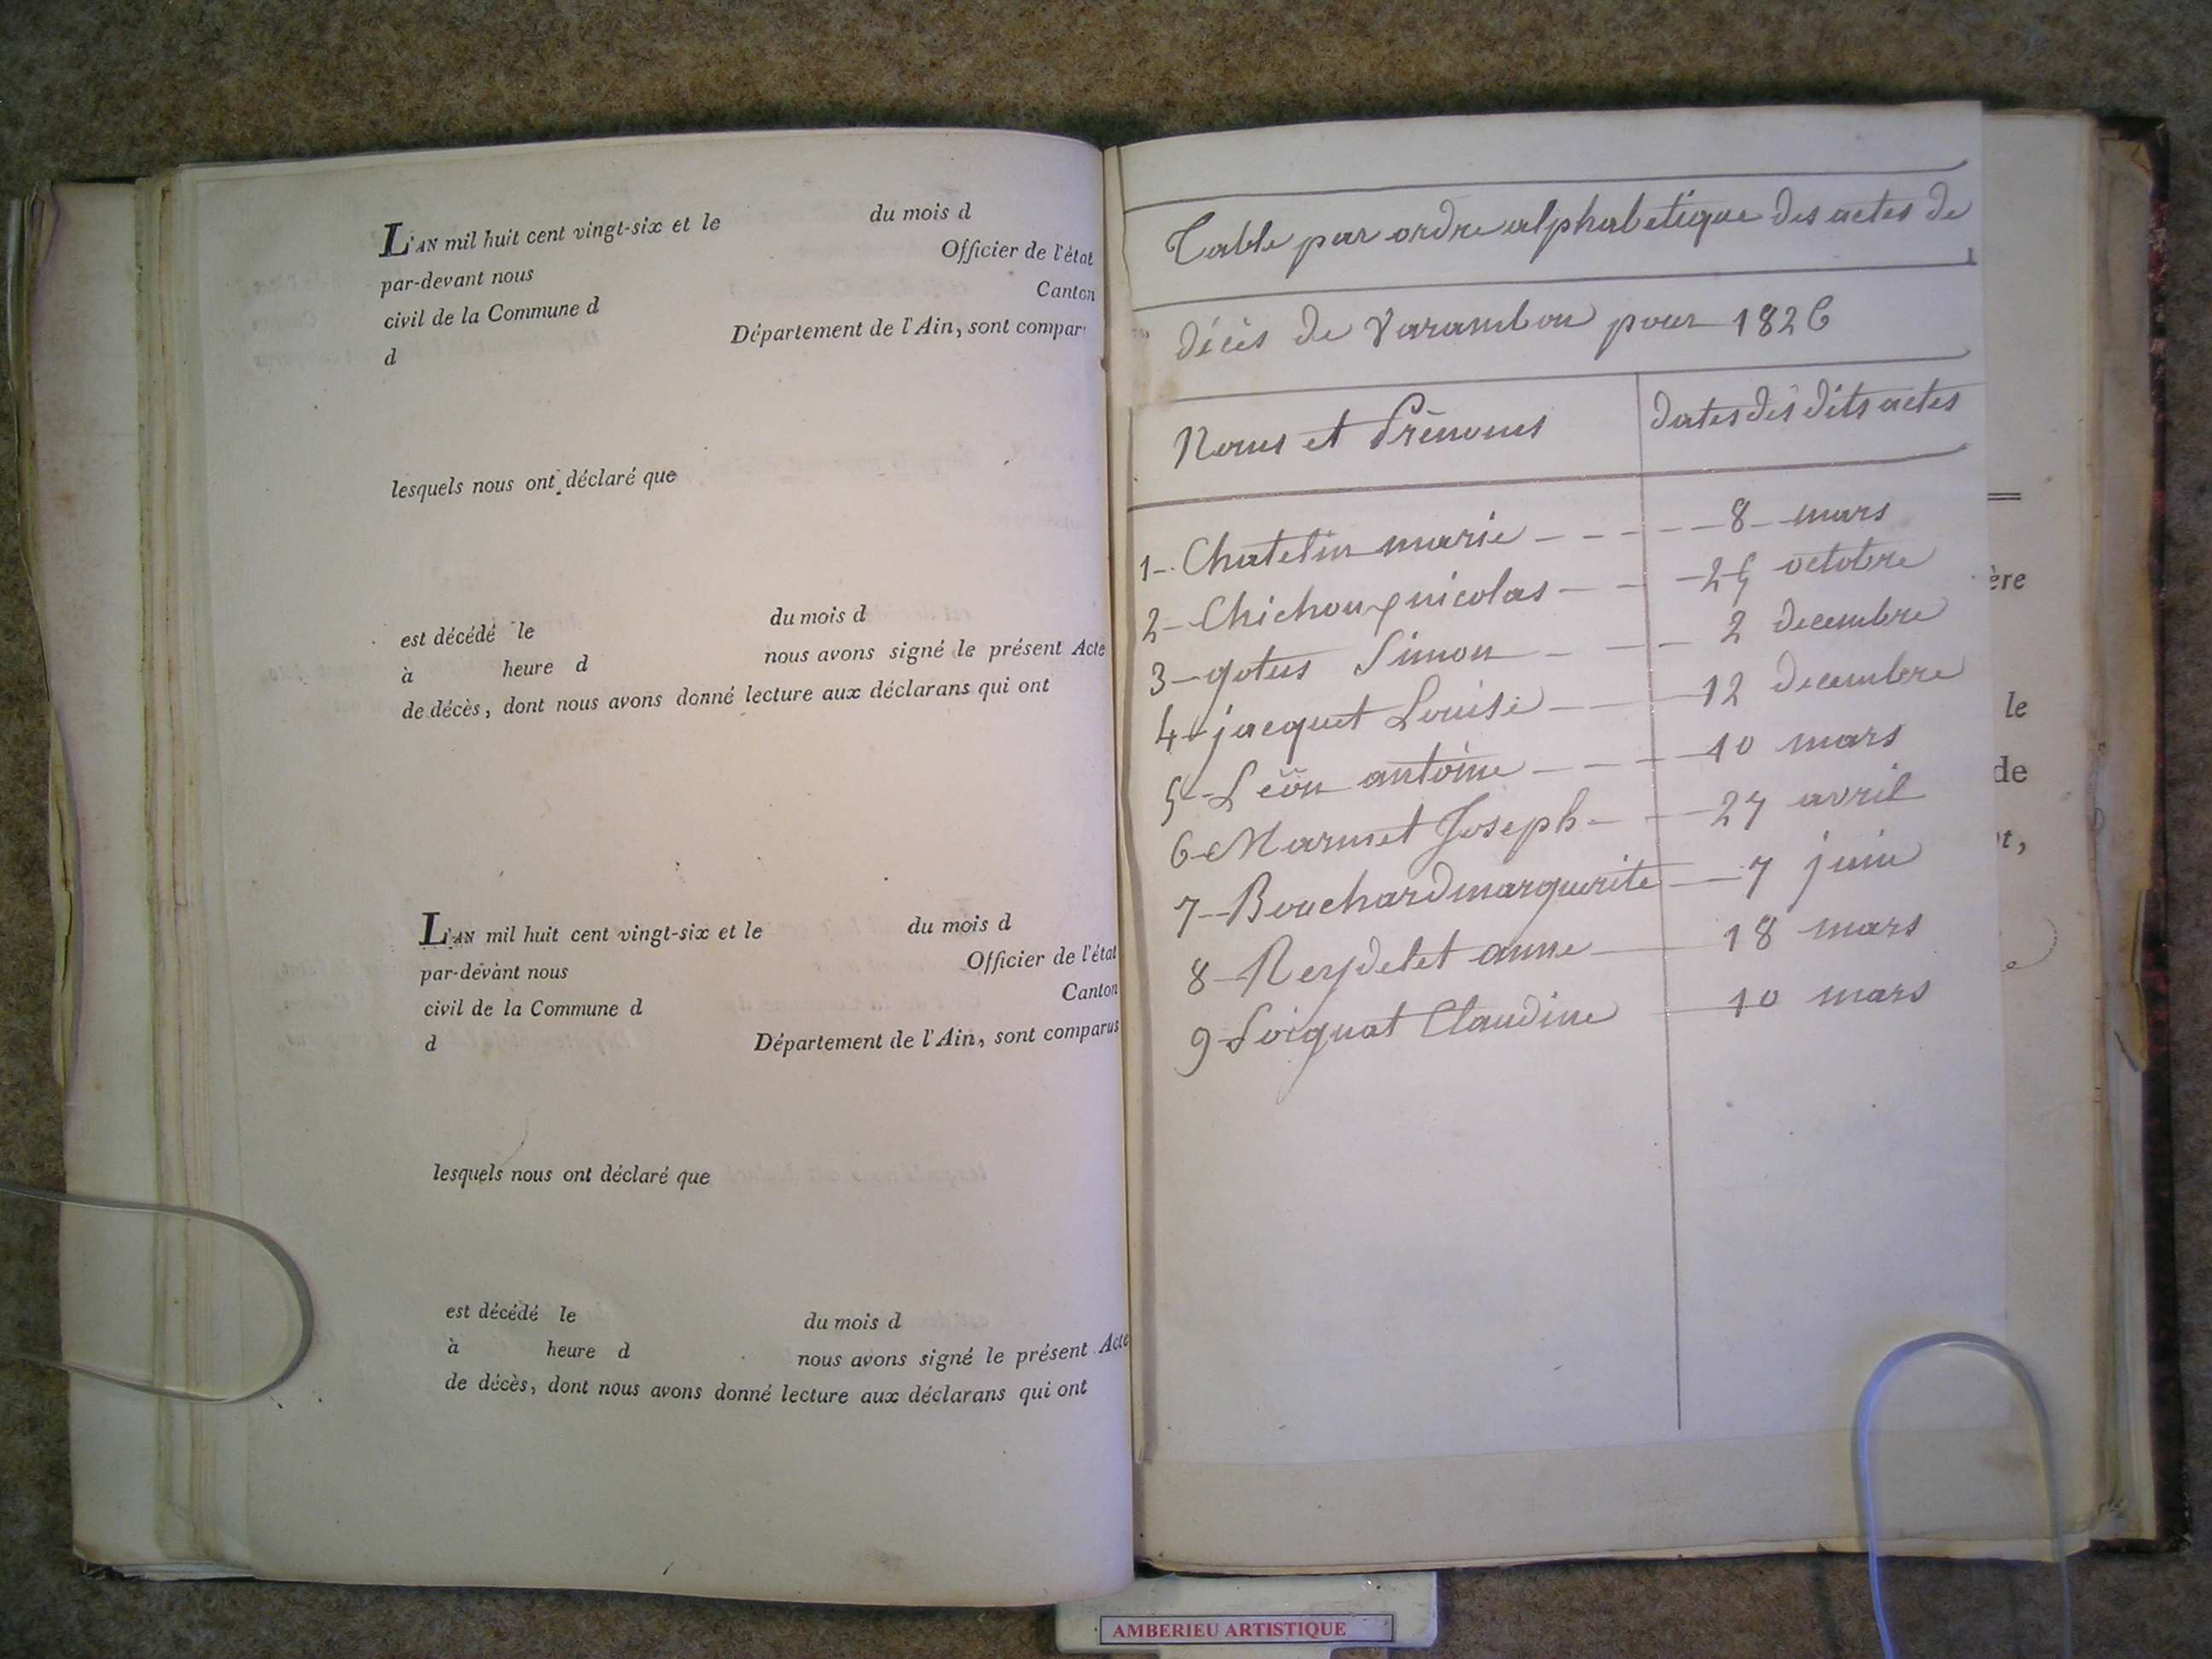 L'AN mil huit cent vingt-six et le du mois d
par-devant nous Officier de l'état
civil de la Commune d Canton
d Département de l'Ain, sont compar
lesquels nous ont déclaré que
est décédé le du mois d
à heure d nous avons signé le présent Acte
de décès, dont nous avons donné lecture aux déclarans qui ont
L'AN mil huit cent vingt-six et le du mois d
par-devant nous Officier de l'état
civil de la Commune d Canton
d Département de l'Ain, sont comparus
lesquels nous ont déclaré que
est décédé le du mois d
à heure d nous avons signé le présent Acte
de décès, dont nous avons donné lecture aux déclarans qui ont
Table par ordre alphabetique des actes de
décès de Varambon pour 1826
Noms et Prénoms dates des dits actes
1 - Chatelin marie - - - - - 8 - mars
2 - Chichoux nicolas - - - octobre
3 - gotus Simon - - - 2 decembre
4 - jacquet Louise - - 12 decembre
5 - Léon antoine - - - - 10 mars
6 - Marmet Joseph - - - 27 avril
7 - Bouchard marguerite - 7 juin
8 - Reydelet anne - 18 mars
9 - Soiquat Claudine - 10 mars
ère
le
de
t,
AMBERIEU ARTISTIQUE